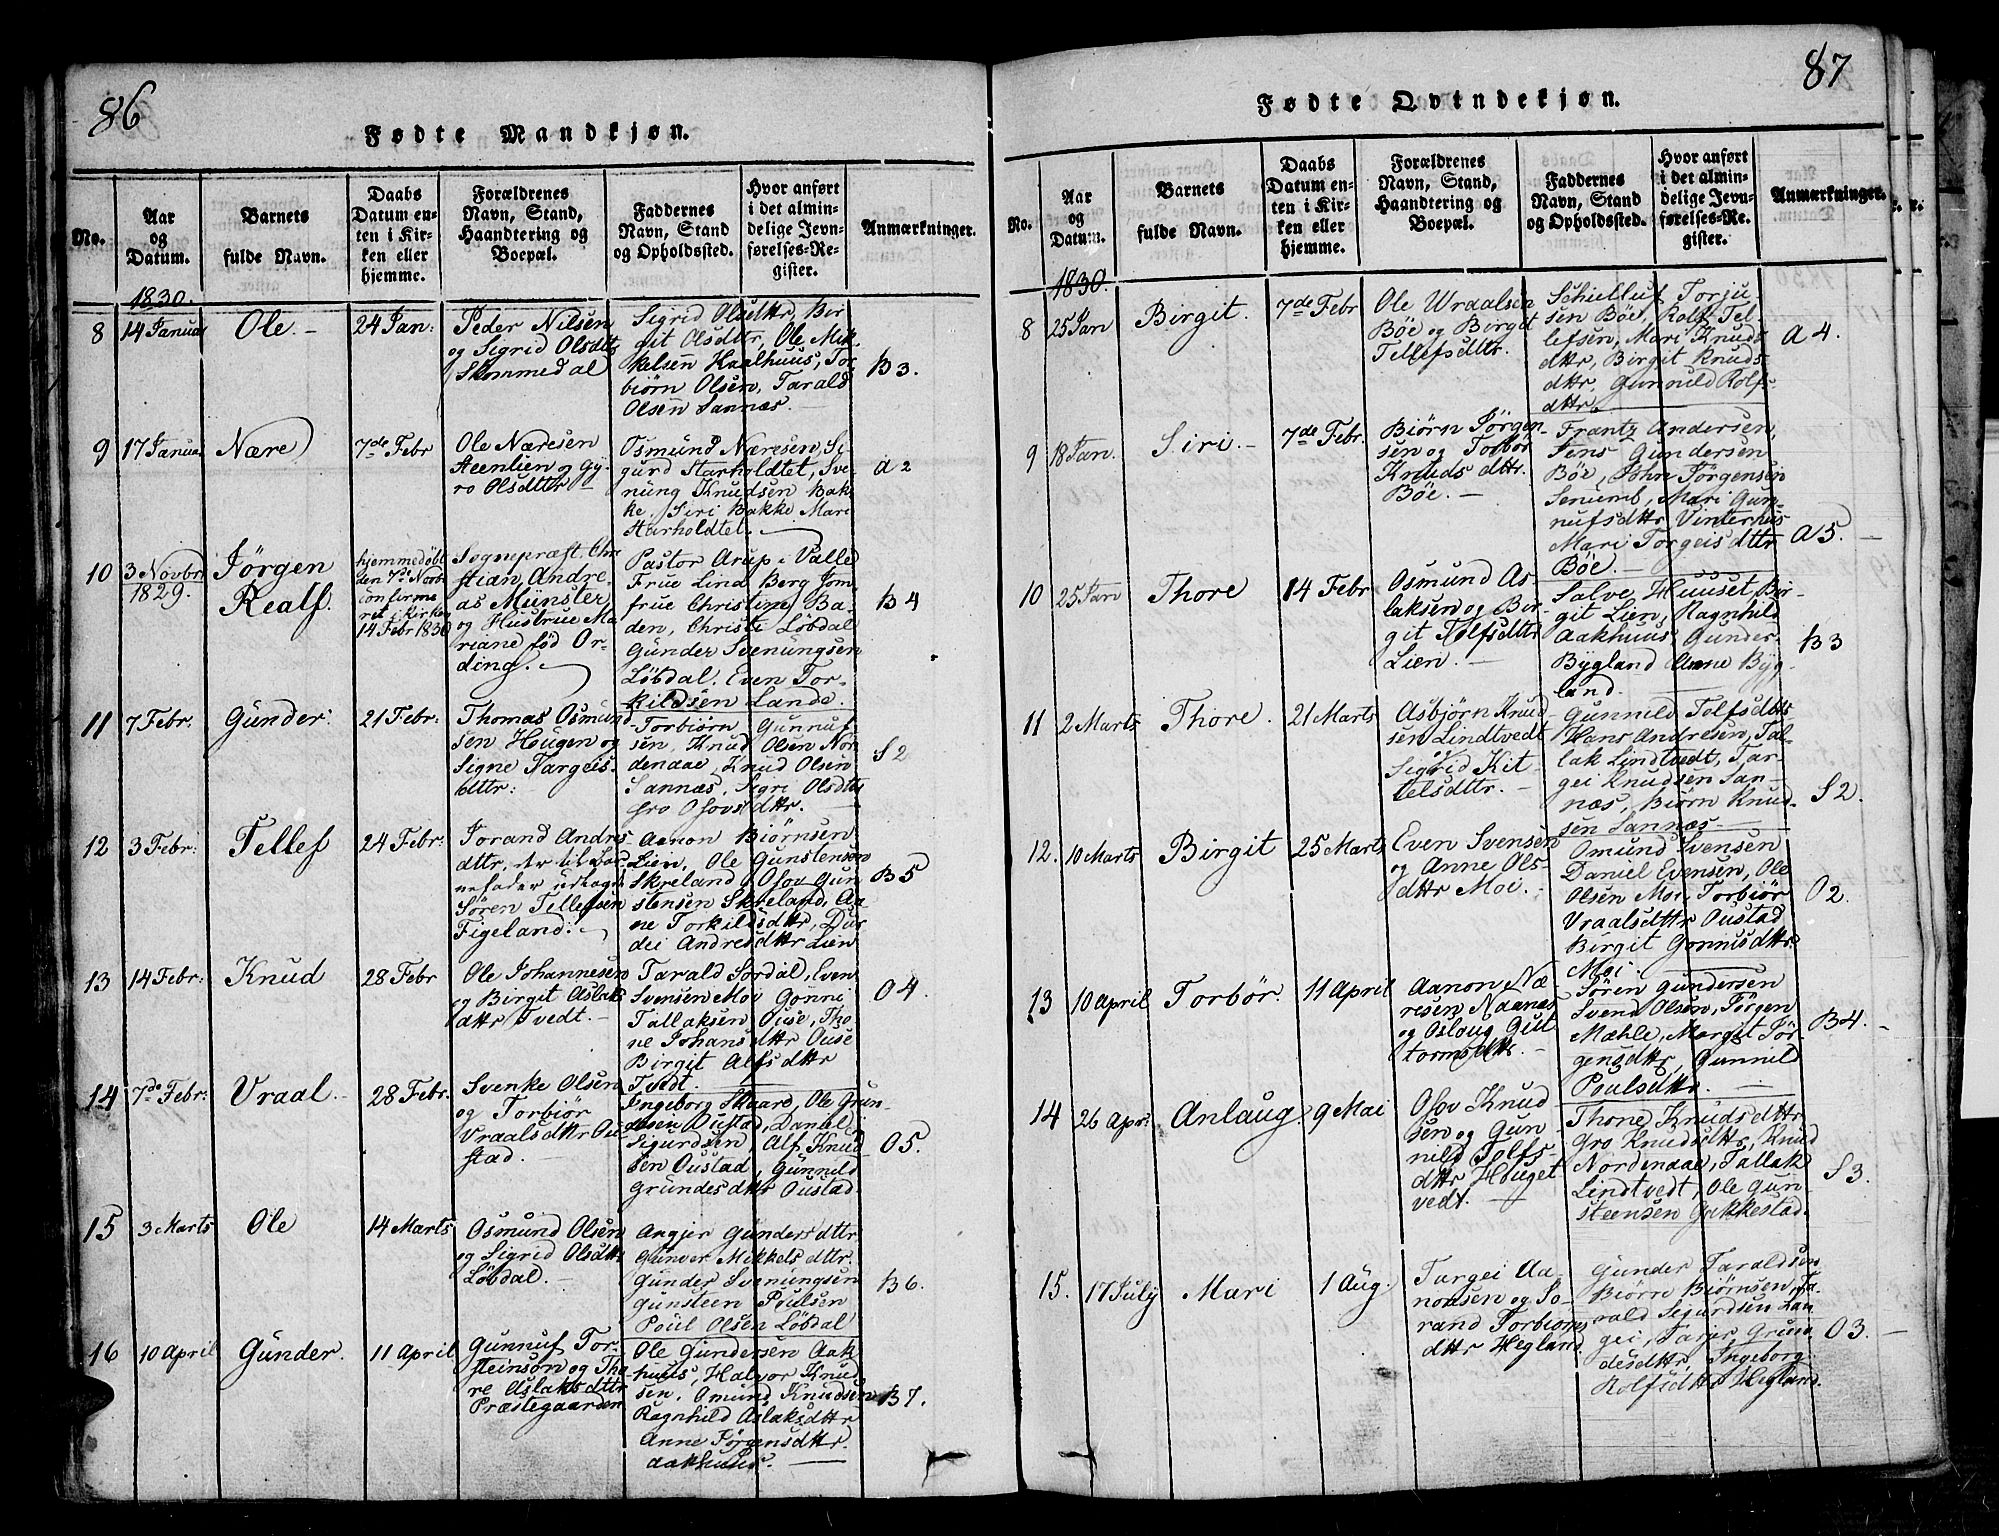 86
Fødte Mandkjøn.
No.
Aar
og
Datum.
Barnets
fulde Navn.
Daabs
Datum en-
ten i Kir-
ken eller
hjemme.
Forældrenes
Navn, Stand,
Haandtering og
Boepæl.
Faddernes
Navn, Stand
og Opholdssted.
Hvor anført
i det almin-
delige Jevn-
førelses-Re-
gister.
Anmærkninger.
1830.
8
14 Januar
Ole. -
24 Jan:
Peder Nilsen
og Sigrid Olsdttr
Skommedal
Sigrid Olsdttr, Bir
git Olsdttr, Ole Mik
kelsen Haalhuus, Tor
biørn Olsen, Tarald
Olsen Sannæs. -
B 3.
9
17 Januar
Nære
7de Febr
Ole Næresen
Steenlien og Gy
ro Olsdttr -
Osmund Næresen, Si
gurd Starholdtet, Sve
nung Knudsen Bak
ke. Siri Bakke Mari
Starholdtet.
a 2
10
3 Novbr
1829.
Jørgen
Realf.
hjemmedøbt
den 7de Novb
confirme
ret i Kirke
14 Febr 1830
Sognepræst. Chri
stian Andre-
as Münster
og Hustrue Ma
riane fød Or-
ding. -
Pastor Arup i Valle
Frue Lind Berg Jom
frue Christine Ba-
den, Christi Løbdal
Gunder Svenungsen
Løbdal. Even Tor-
kildsen Lande.
B 4
11
7 Febr:
Gunder:
21 Febr:
Thomas Osmund
sen Heugen og
Signe Targeis-
dttr:
Torbiørn Gunnuf
sen, Knud Olsen Nor
dendae, Knud Olsen
Sannæs, Sigri Olsdttr
Gro Osovs dttr.
S 2
12
3 Febr:
Tellef
24 Febr:
Jorand Andres
dttr,
Søren Tellefsen
Figeland:
Aanon Biørnsen
Lien, Ole Gunstensen
Skreland Osov Gun
stensen Skreland, Aa
ne Torkildsdttr, Dar
dei Andresdttr Lien
B 5
13
14 Febr:
Knud
28 Febr
Ole Johannesen
og Birgit Aslaks
dttr Tvedt. -
Tarald Sordal, Even
Svensen Moi Gonni
Tallaksen Ouse, Tho
ne Johansdttr Ouse
Birgit Alfsdttr
Tvedt.
O 4.
14
7de Febr:
Vraal
28 Febr.
Svenke Olsen
og Torbiør
Vraalsdttr Ou
stad. -
Ingeborg Skaard, Ole Grun-
desen Oustad, Daniel
Sigurdsen, Alf Knud
sen Oustad, Gunnild
Grundesdttr Oustad
O 5.
15
3 Marts
Ole
14 Marts
Osmund Olsen
og Sigrid Olsdttr
Løbdal. -
Angjer Gundersdttr
Gunver Mikkelsdttr
Gunder Svenungsen
Gunsteen Poulsen
Poul Olsen Løbdal
B 6.
16
10 April
Gunder.
11 April
Gunnuf Tor-
steinsøn og Tho
re Aslaksdttr
Præstegaarden
Ole Gundersen Aak
huus, Halvor Knud
sen, Omund Knudsen
Ragnhild Aslaksdttr
Anne Jørgensdttr
Aakhuus.
B 7.
87
Fødte Qvindekjøn.
No.
Aar
og
Datum.
Barnets
fulde Navn.
Daabs
Datum en-
ten i Kir-
ken eller
hjemme.
Forældrenes
Navn, Stand,
Haandtering og
Boepæl.
Faddernes
Navn, Stand
og Opholdssted.
Hvor anført
i det almin-
delige Jevn-
førelses-Re-
gister.
Anmærkninger.
1830.
8
25 Jan
Birgit.
7de Febr
Ole Uraalsen
Bøe og Birgit
Tellefsdttr.
Schielluf Torju
sen Bøe, Rolf Tel
lefsen, Mari Knuds
dttr, Birgit Knuds-
dttr, Gunnild Rolfs-
dttr.
A 4.
9
18 Jan.
Siri. -
7de Febr.
Biørn Jørgen
sen og Torbør
Knuds dttr.
Bøe. -
Frantz Andersen,
Jens Gundersen
Bøe, John Jørgensen
Senumb, Mari Gun-
nufsdttr Vinterhus
Mari Torgeisdttr
Bøe. -
A 5. -
10
25 Jan
Thore
14 Febr
Osmund As-
laksen og Bir-
git Tolfsdttr
Lien. -
Salve Huuset, Bir
git Lien, Ragnhild
Aakhuus, Gunder
Bygland Anne Byg-
land.
B 3
11
2 Marts
Thore.
21 Marts
Asbjørn Knud
sen Lindtvedt
Sigrid Kit-
telsdttr. -
Gunnild Tolfsdttr
Hans Andresen, Tal-
lak Lindtvedt, Tar-
gei Knudsen San-
næs, Biørn Knud-
sen Sannæs -
S 2.
12.
10 Marts
Birgit
25 Marts
Even Svensen
og Anne Ols-
dttr Moi. -
Omund Svensen
Daniel Evensen, Ole
Olsen Moi, Torbiør
Vraalsdttr Oustad
Birgit Gonnisdttr
Moi.
O 2.
13
10 April
Torbør.
11 April
Aanon Næ
resen Naanes
og Aslaug Gut
tormsdttr. -
Søren Gundersen
Svend Olsen, Jørgen
Mæhle, Margit Jør-
gensdttr, Gunnild
Poulsdttr. -
B 4. -
14
26 Apr:
Anlaug.
9 Mai
Osov Knud
sen og Gun
nild Tolfs-
dttr Houget
vedt. -
Thone Knudsdttr
Gro Knudsdttr, Knud
Nordendae, Tallak
Lindtvedt, Ole Gun-
steensen Grikkestad.
S 3.
15.
17 July
Mari
1 Aug:
Targei Aa-
nonsen og Jo-
rand Torbiørns
dttr Hegland.
Gunder Taraldsen
Biørn Biørnsen, Ta-
rald Sigurdsen Lan-
gei, Tarjer Grun
desdttr, Ingeborg
Rolfsdttr Hegland.
O 3. -